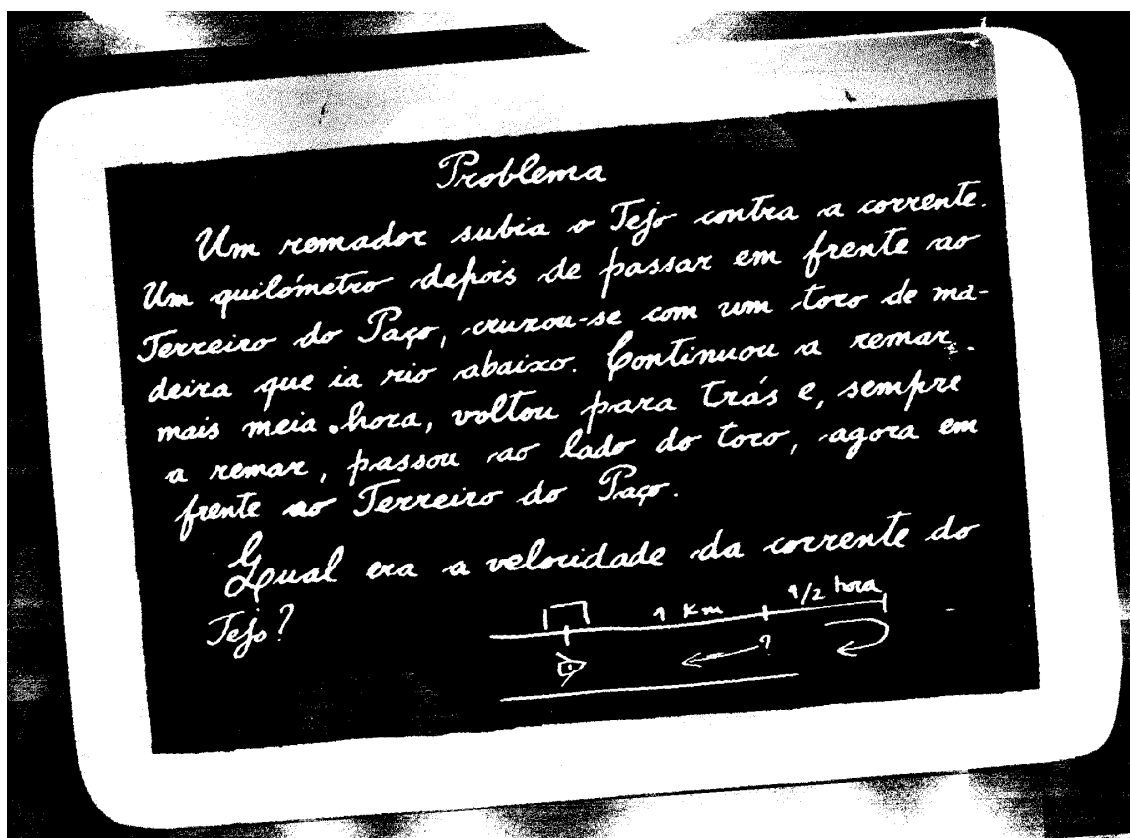 Problema
Um remador subia o Tejo contra a corrente.
Um quilómetro depois de passar em frente ao
Terreiro do Paço, cruzou-se com um toro de ma-
deira que ia rio abaixo. Continuou a remar
mais meia hora, voltou para trás e, sempre
a remar, passou ao lado do toro, agora em
frente ao Terreiro do Paço.
Qual era a velocidade da corrente do
Tejo?
1 Km 1/2 hora